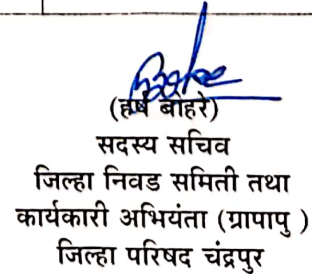 (हर्ष बोहरे)
सदस्य सचिव
जिल्हा निवड समिती तथा
कार्यकारी अभियंता (ग्रापापु )
जिल्हा परिषद चंद्रपुर